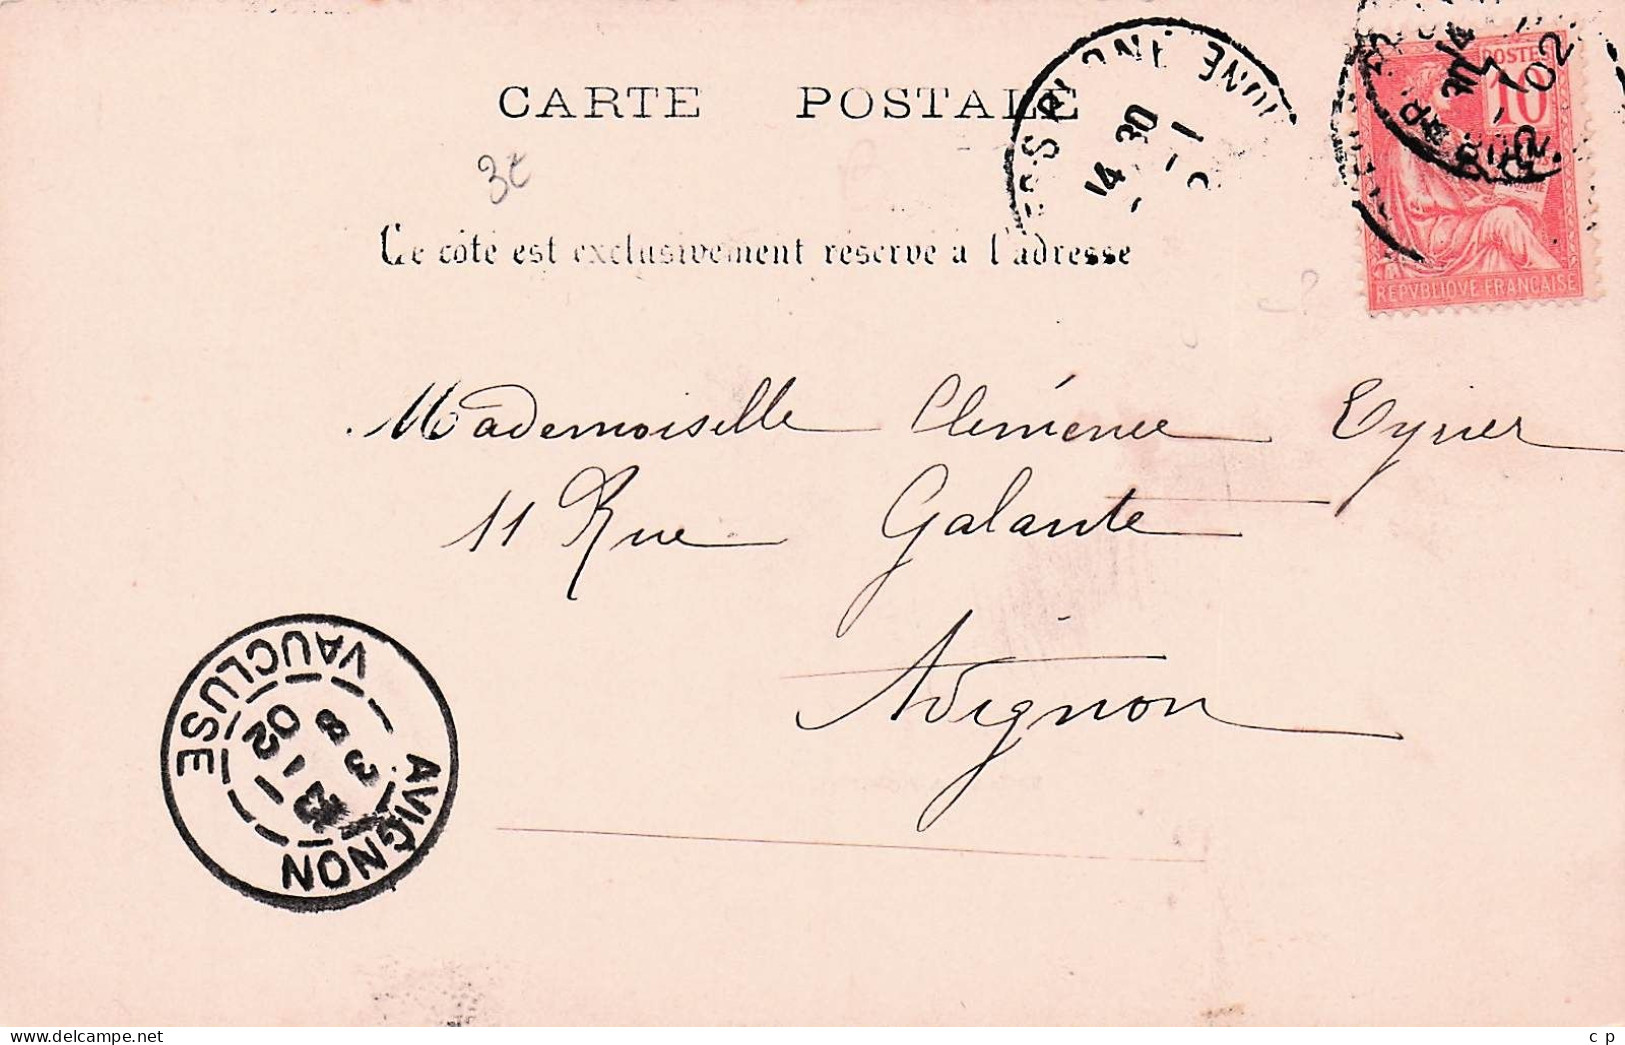 CARTE POSTALE
3€
Ce côté est exclusivement réservé à l'adresse
14 30
-1
POSTES
10
REPVBLIQVE FRANÇAISE
14
30
02
Mademoiselle Clémence Eynier
11 Rue Galante
Avignon
AVIGNON
VAUCLUSE
3 8
13 - 1
02
www.delcampe.net
c p